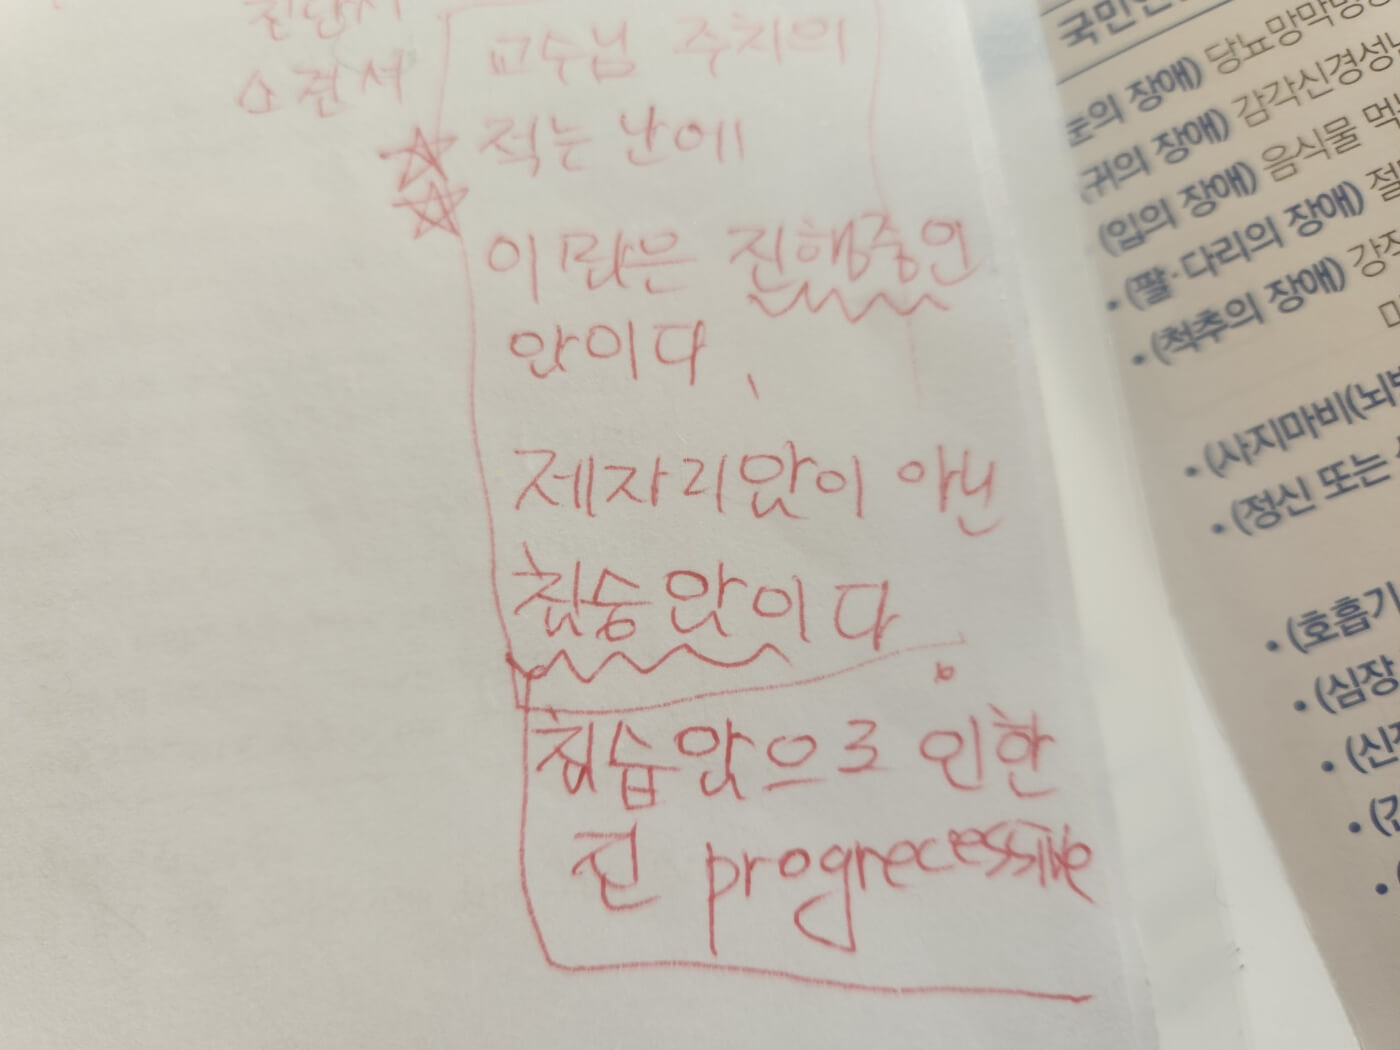 진단서
소견서
교수님 주치의
적는 난에
이 환은 진행중인
암이다,
제자리암이 아닌
침숭암이다.
침습암으로 인한
전 progrecessive
국민연
눈의 장애) 당뇨망막병증
귀의 장애) 감각신경성난
(입의 장애) 음식물 먹
• (팔·다리의 장애) 절
• (척추의 장애) 강직
• (사지마비(뇌병
• (정신 또는
• (호흡기
• (심장
• (신장
• (간